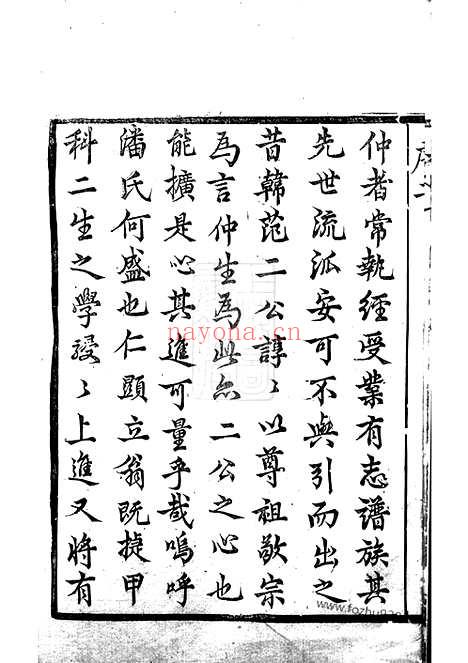 仲者常執經受業有志譜族其
先世流派安可不與引而出之
昔韓范二公諄〻以尊祖敬宗
為言仲生為此亦二公之心也
能擴是心其進可量乎哉嗚呼
潘氏何盛也仁顯立翁既捷甲
科二生之學駸〻上進又將有
nayona.cn